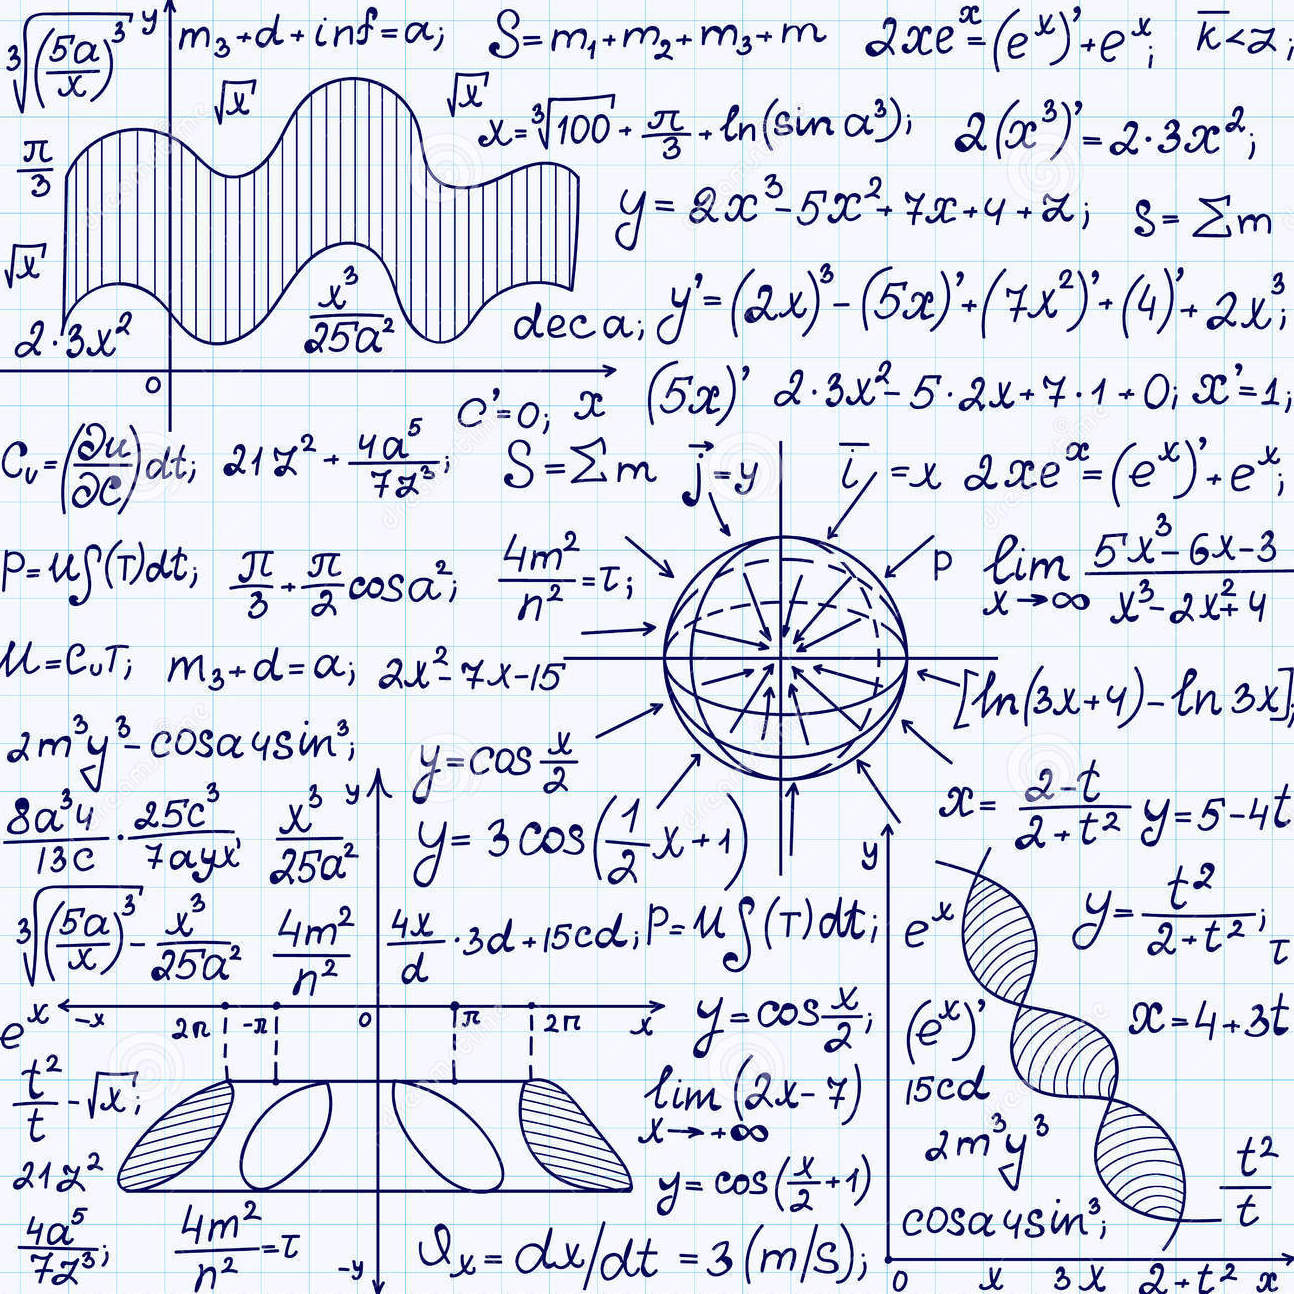 ∛(5a/x)³ y m₃+d+inf=a; S=m₁+m₂+m₃+m 2xeˣ=(eˣ)'+eˣ; k̅<z;
√x √x x=∛100+π/3+ln(sin a³); 2(x³)'=2·3x²;
π/3 y=2x³-5x²+7x+4+z; S=∑m
√x x³/25a² y'=(2x)³-(5x)'+(7x²)'+(4)'+2x³;
2·3x² dec a;
0 C'=0; x (5x)' 2·3x²-5·2x+7·1+0; x'=1;
Cᵥ=(∂u/∂c)dt; 21z²+4a⁵/7z³; S=∑m j⃗=y i̅=x 2xeˣ=(eˣ)'+eˣ;
P=u∫(T)dt; π/3+π/2 cosa²; 4m²/n²=τ; P lim x→∞ 5x³-6x-3/x³-2x²+4
u=CᵥT; m₃+d=a; 2x²-7x-15 [ln(3x+4)-ln 3x];
2m³y³-cosa4sin³; y=cos x/2
8a³4/13c·25c³/7ayx x³/25a² y y=3cos(1/2 x+1) x=2-t/2+t² y=5-4t
∛(5a/x)³-x³/25a² 4m²/n² 4x/d·3d+15cd; P=u∫(T)dt; y eˣ y=t²/2+t²; τ
eˣ -x 2π -π 0 π 2π x y=cos x/2; (eˣ)' x=4+3t
t²/t-√x; lim x→+∞ (2x-7) 15cd
21z² y=cos(x/2+1) 2m³y³ t²/t
4a⁵/7z³; 4m²/n²=τ -y ϑₓ=dx/dt=3(m/s); cosa4sin³;
0 x 3x 2+t² x